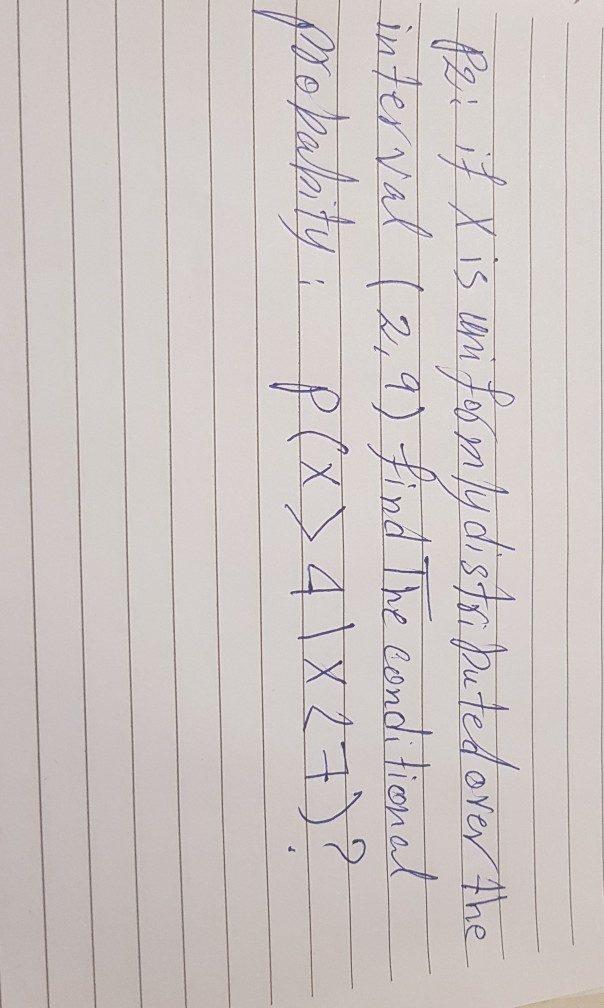 P2: if X is uniformly distributed over the
interval (2,9) find The conditional
probabity: P(X > 4 | X < 7)?